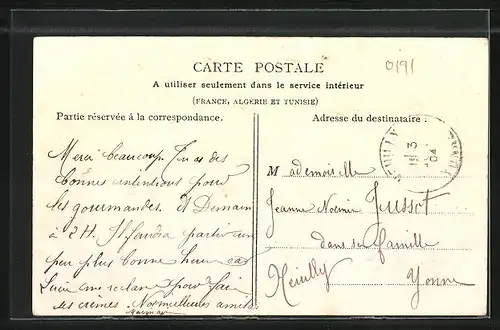 CARTE POSTALE
0191
A utiliser seulement dans le service intérieur
(FRANCE, ALGERIE ET TUNISIE)
Partie réservée à la correspondance.
Adresse du destinataire :
Merci beaucoup. Tu as des
bonnes intentions pour
les gourmandes. A Demain
à 2H. Il faudra partir un
peu plus bonne heure car
Lucie me réclame pour faire
des crèmes. Nos meilleures amitiés
Mademoiselle
Jeanne Noémie Jussot
dans sa famille
Neuilly Yonne
NEUILLY
3
04